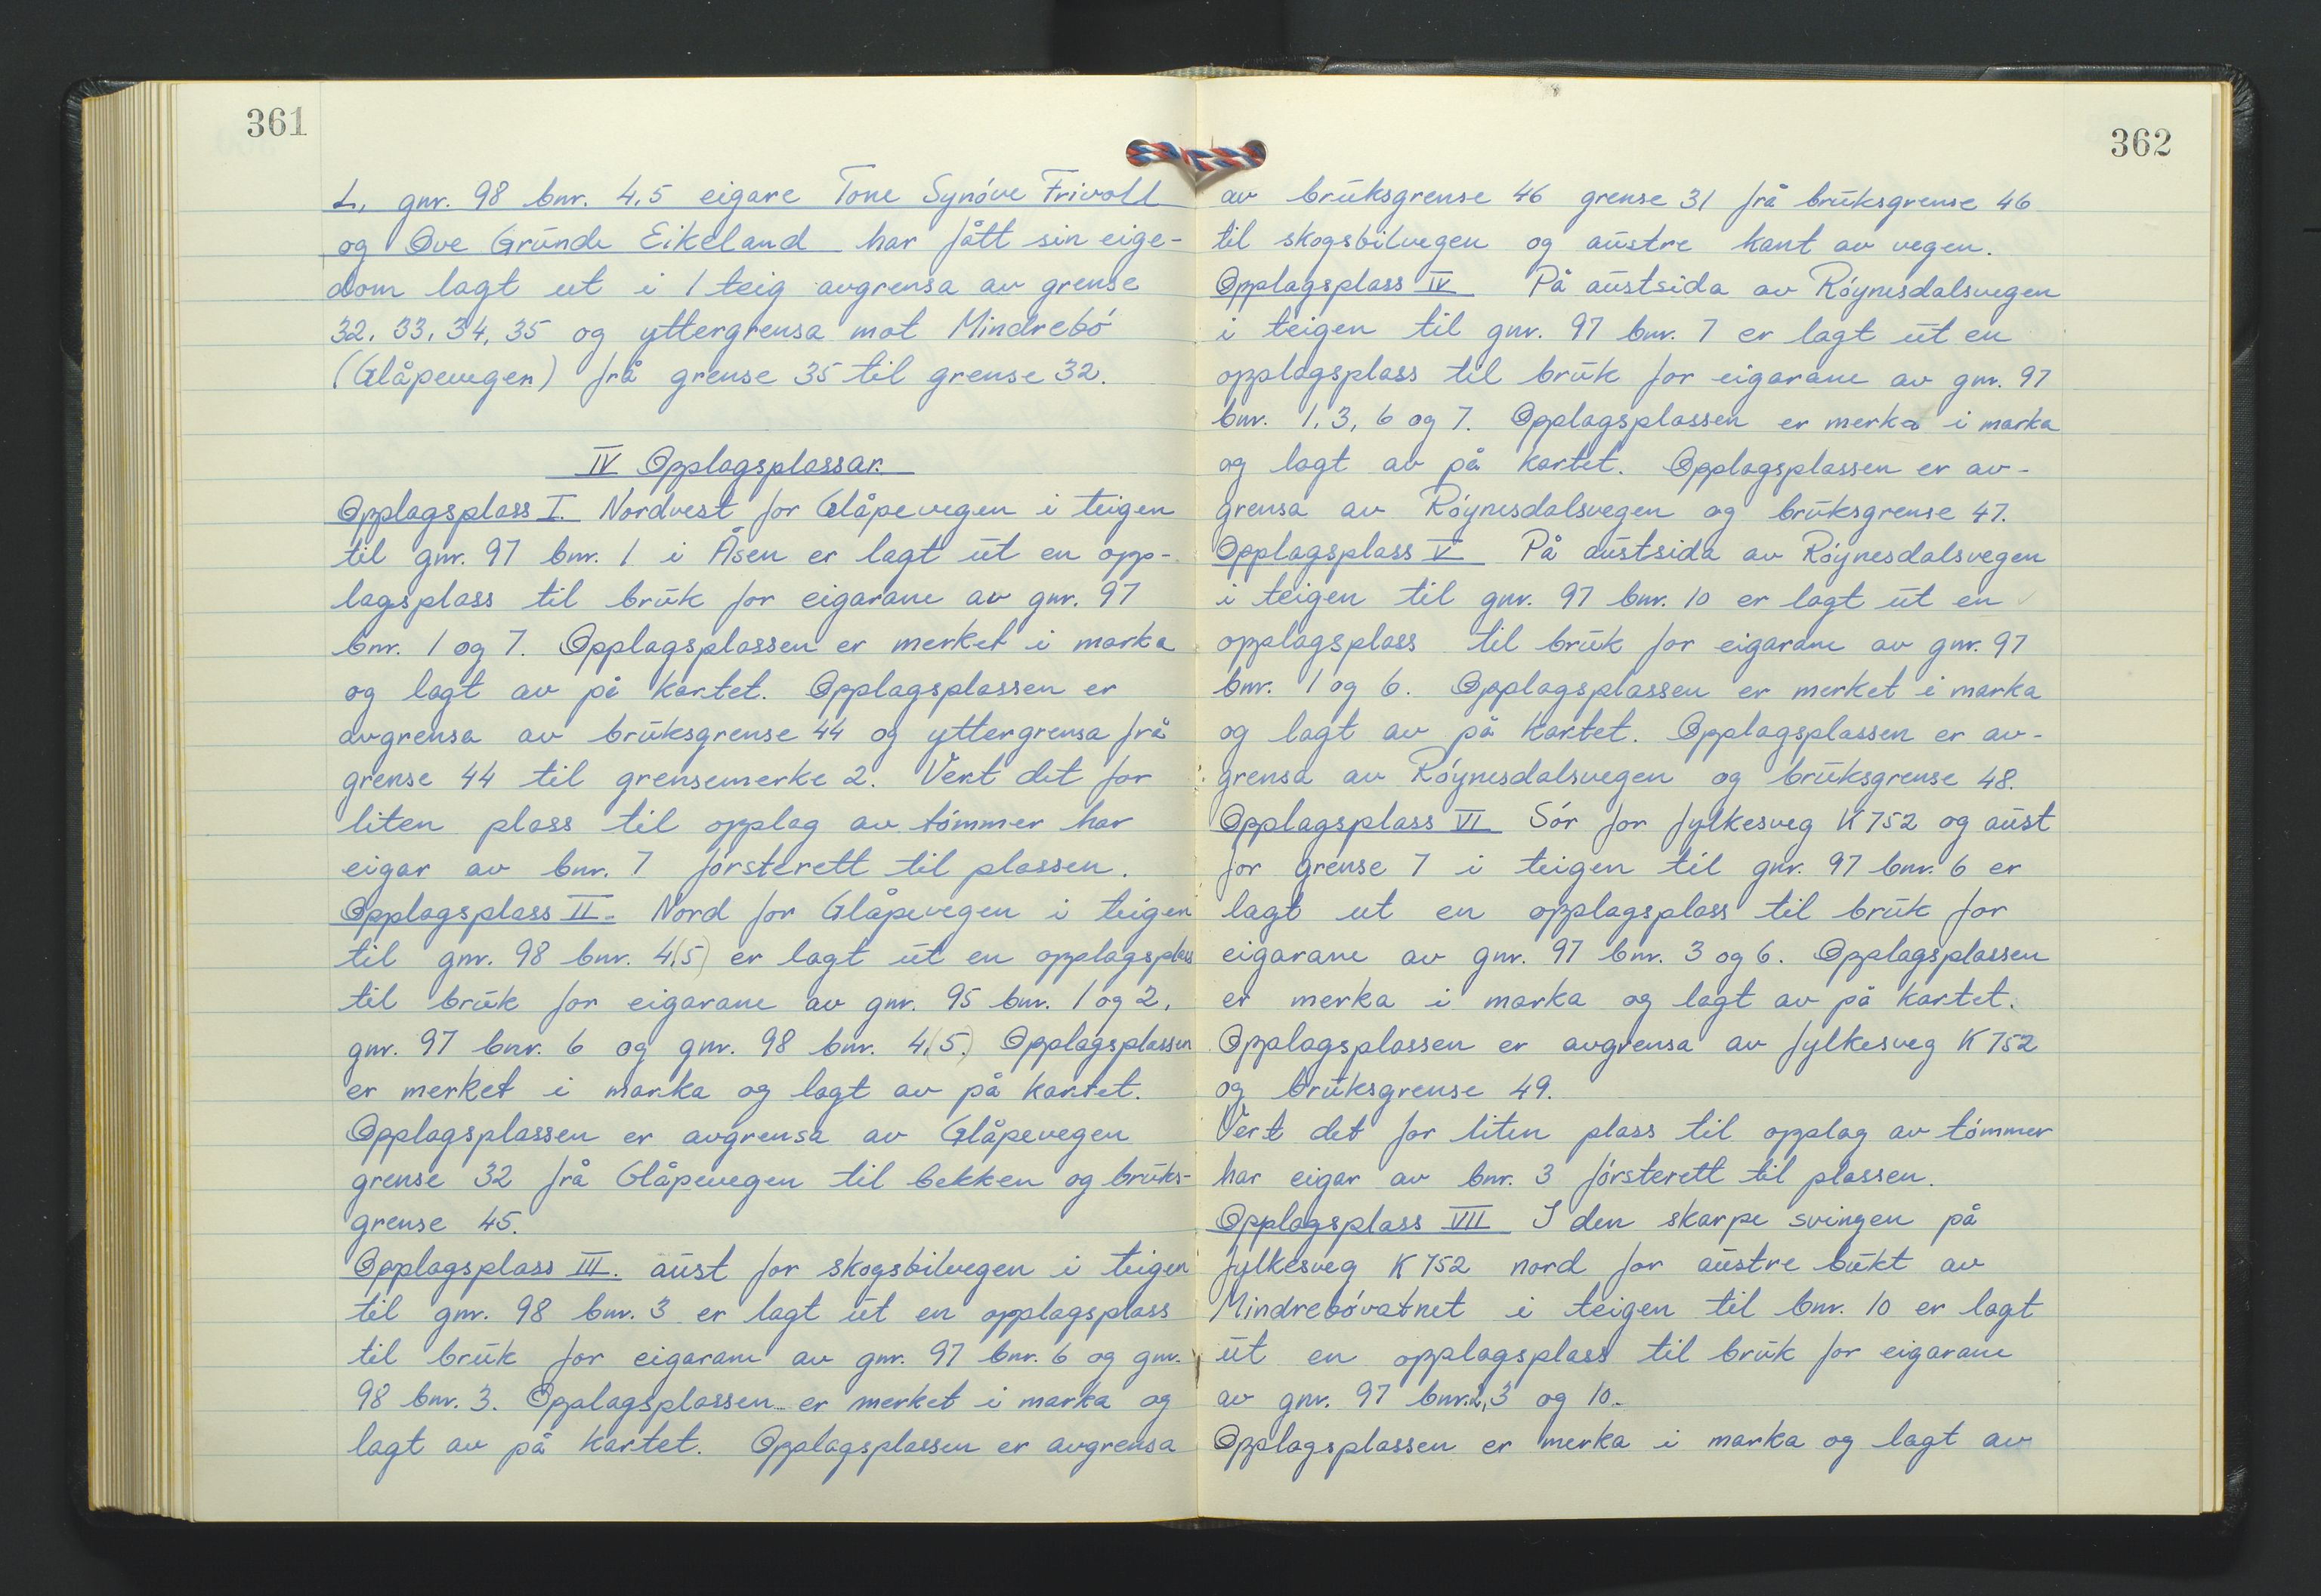 361
L. gnr. 98 bnr. 4,5 eigare Tone Synóve Frivoll
og Ove Grunde Eikeland har fått sin eige-
dom lagt ut i 1 teig avgrensa av grense
32, 33, 34, 35 og yttergrensa mot Mindrebó
(Glåpevegen) frå grense 35 til grense 32.
IV Opplagsplassar.
Opplagsplass I. Nordvest for Glåpevegen i teigen
til gnr. 97 bnr. 1 i Åsen er lagt ut en opp-
lagsplass til bruk for eigarane av gnr. 97
bnr. 1 og 7. Opplagsplassen er merket i marka
og lagt av på kartet. Opplagsplassen er
avgrensa av bruksgrense 44 og yttergrensa frå
grense 44 til grensemerke 2. Vert det for
liten plass til opplag av tómmer har
eigar av bnr. 7 fórsterett til plassen.
Opplagsplass II. Nord for Glåpevegen i teigen
til gnr. 98 bnr. 4(5) er lagt ut en opplagsplass
til bruk for eigarane av gnr. 95 bnr. 1 og 2,
gnr. 97 bnr. 6 og gnr. 98 bnr. 4,(5.) Opplagsplassen
er merket i marka og lagt av på kartet.
Opplagsplassen er avgrensa av Glåpevegen
grense 32 frå Glåpevegen til bekken og bruks-
grense 45.
Opplagsplass III. aust for skogsbilvegen i teigen
til gnr. 98 bnr. 3 er lagt ut en opplagsplass
til bruk for eigarane av gnr. 97 bnr. 6 og gnr.
98 bnr. 3. Opplagsplassen er merket i marka og
lagt av på kartet. Opplagsplassen er avgrensa
362
av bruksgrense 46 grense 31 frå bruksgrense 46
til skogsbilvegen og austre kant av vegen.
Opplagsplass IV På austsida av Róynesdalsvegen
i teigen til gnr. 97 bnr. 7 er lagt ut en
opplagsplass til bruk for eigarane av gnr. 97
bnr. 1, 3, 6 og 7. Opplagsplassen er merka i marka
og lagt av på kartet. Opplagsplassen er av-
grensa av Róynesdalsvegen og bruksgrense 47.
Opplagsplass V På austsida av Róynesdalsvegen
i teigen til gnr. 97 bnr. 10 er lagt ut en
opplagsplass til bruk for eigarane av gnr. 97
bnr. 1 og 6. Opplagsplassen er merket i marka
og lagt av på kartet. Opplagsplassen er av-
grensa av Róynesdalsvegen og bruksgrense 48.
Opplagsplass VI Sór for fylkesveg K 752 og aust
for grense 7 i teigen til gnr. 97 bnr. 6 er
lagt ut en opplagsplass til bruk for
eigarane av gnr. 97 bnr. 3 og 6. Opplagsplassen
er merka i marka og lagt av på kartet.
Opplagsplassen er avgrensa av fylkesveg K 752
og bruksgrense 49.
Vert det for liten plass til opplag av tómmer
har eigar av bnr. 3 fórsterett til plassen.
Opplagsplass VII I den skarpe svingen på
fylkesveg K 752 nord for austre bukt av
Mindrebóvatnet i teigen til bnr. 10 er lagt
ut en opplagsplass til bruk for eigarane
av gnr. 97 bnr. 2, 3 og 10.
Opplagsplassen er merka i marka og lagt av